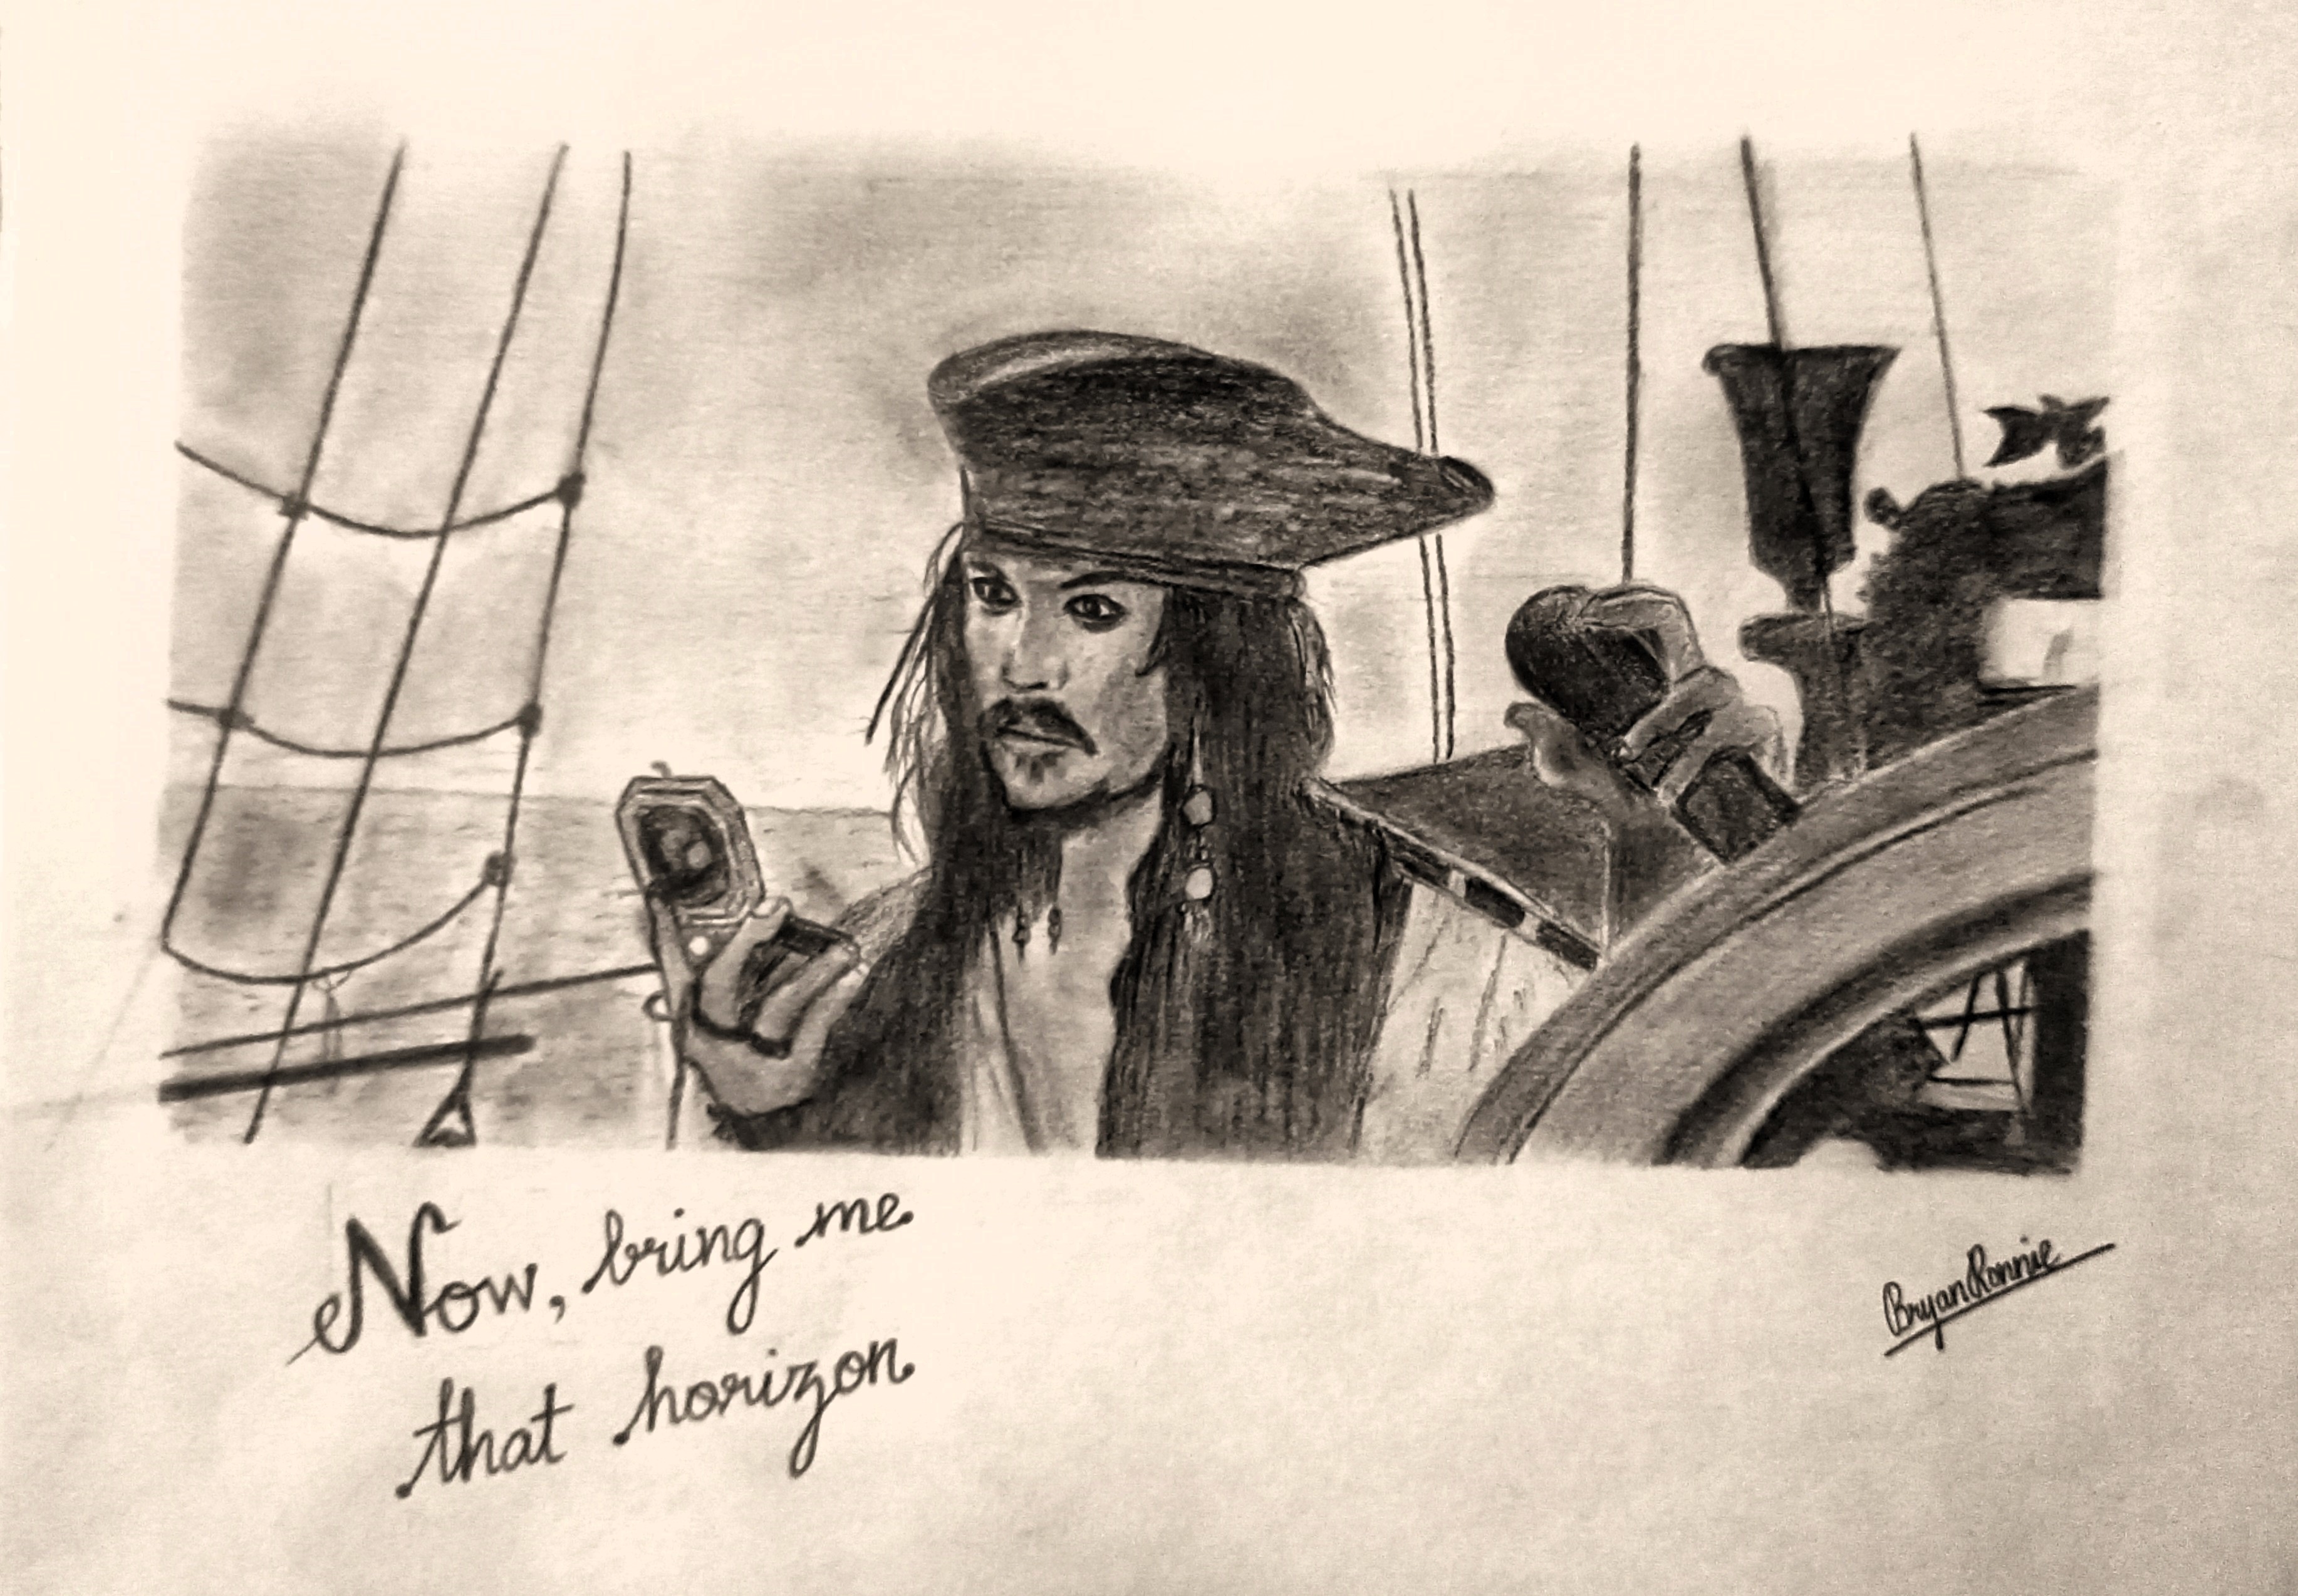 Now, bring me
that horizon
Bryan Ronnie